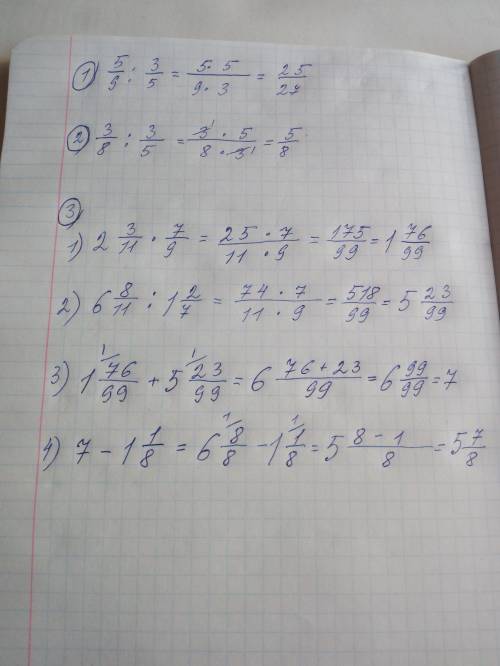 1) 5/9 : 3/5 = 5·5/9·3 = 25/27
2) 3/8 : 3/5 = 3¹·5/8·3¹ = 5/8
3
1) 2 3/11 · 7/9 = 25·7/11·9 = 175/99 = 1 76/99
2) 6 8/11 : 1 2/7 = 74·7/11·9 = 518/99 = 5 23/99
3) 1 ¹/76/99 + 5 ¹/23/99 = 6 76+23/99 = 6 99/99 = 7
4) 7 - 1 1/8 = 6 ¹/8/8 - 1 ¹/1/8 = 5 8-1/8 = 5 7/8